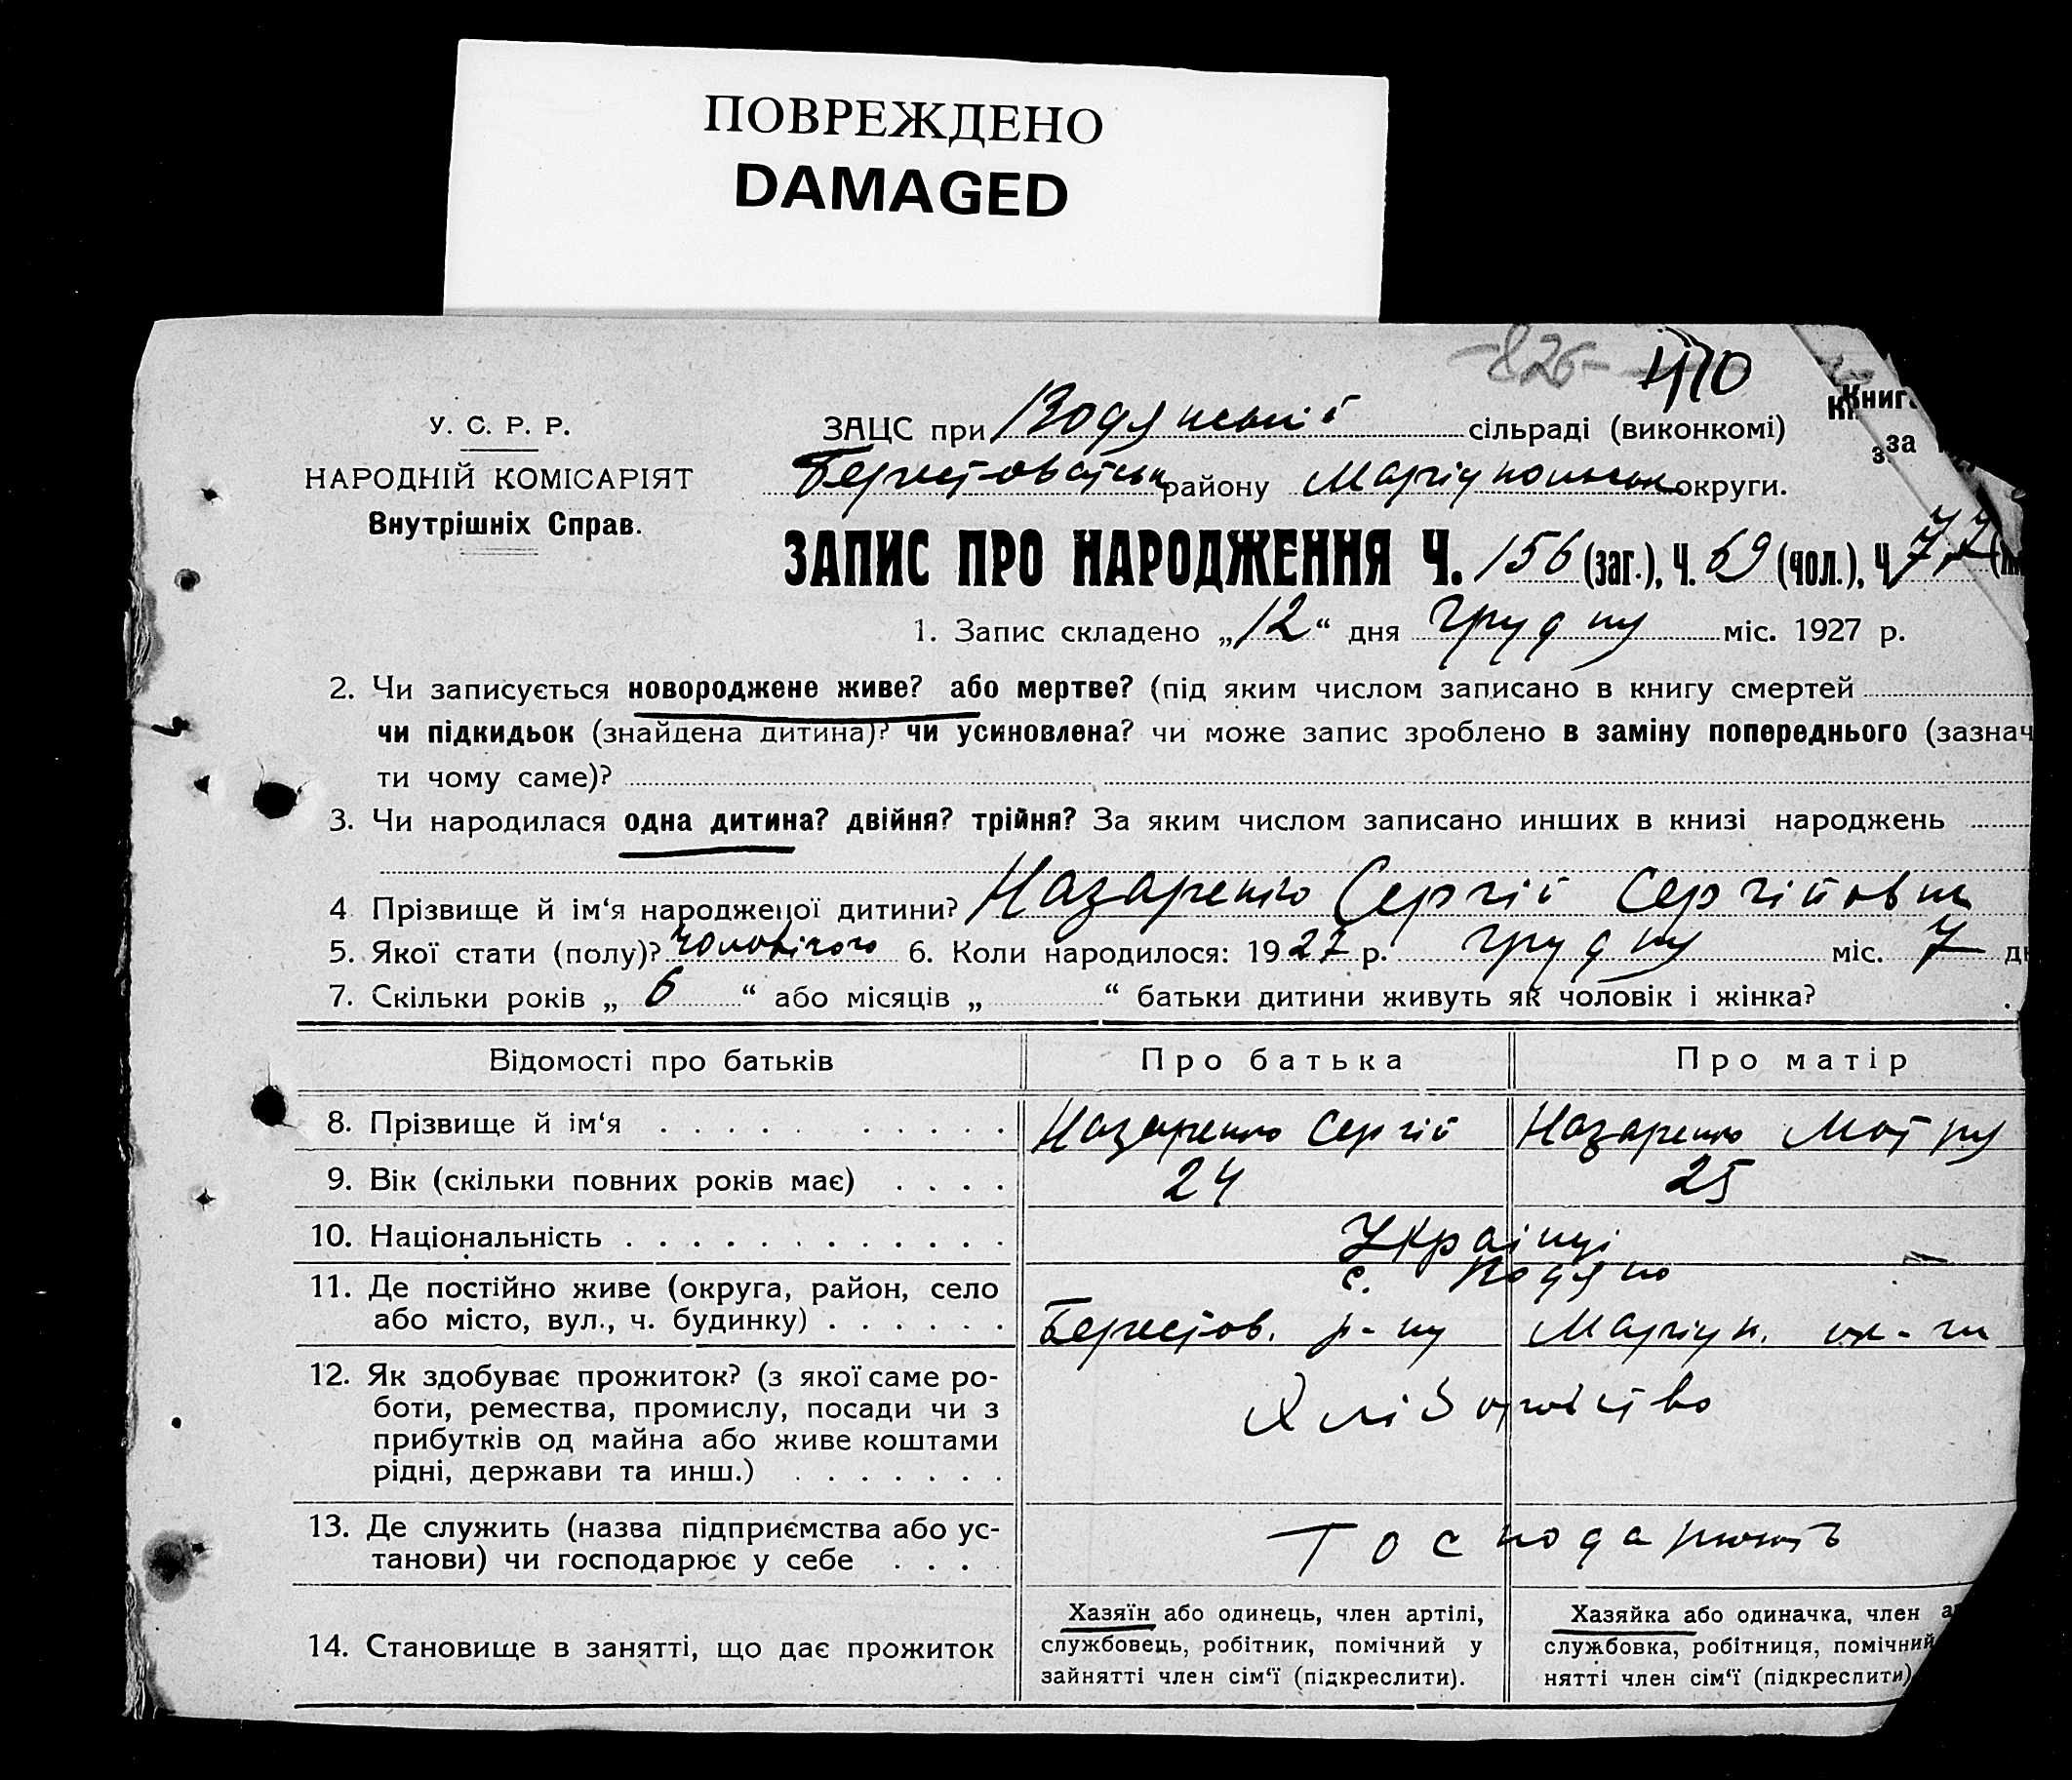 ПОВРЕЖДЕНО
DAMAGED
-826- 410
У. С. Р. Р.
НАРОДНІЙ КОМІСАРІЯТ
Внутрішніх Справ.
ЗАЦС при Водянській сільраді (виконкомі)
Берестоватськ району Маріупольськ округи.
Книг
за
ЗАПИС ПРО НАРОДЖЕННЯ Ч. 156 (заг.), Ч. 69 (чол.), Ч. 77
1. Запис складено „12“ дня грудня міс. 1927 р.
2. Чи записується новороджене живе? або мертве? (під яким числом записано в книгу смертей
чи підкидьок (знайдена дитина)? чи усиновлена? чи може запис зроблено в заміну попереднього (зазнач
ти чому саме)?
3. Чи народилася одна дитина? двійня? трійня? За яким числом записано инших в книзі народжень
4 Прізвище й ім‘я народженої дитини? Назаренко Сергій Сергійович
5. Якої стати (полу)? чоловічого 6. Коли народилося: 1927 р. грудня міс. 7 д
7. Скільки років „ 6 “ або місяців „ “ батьки дитини живуть як чоловік і жінка?
Відомості про батьків Про батька Про матір
8. Прізвище й ім‘я Назаренко Сергій Назаренко Мотря
9. Вік (скільки повних років має) 24 25
10. Національність Українці
11. Де постійно живе (округа, район, село с. Водяно
або місто, вул., ч. будинку) Берестов. р-ну Маріуп. ок-ги
12. Як здобуває прожиток? (з якої саме ро- Хліборобство
боти, ремества, промислу, посади чи з
прибутків од майна або живе коштами
рідні, держави та инш.)
13. Де служить (назва підприємства або ус- Господарюють
танови) чи господарює у себе
14. Становище в занятті, що дає прожиток
Хазяїн або одинець, член артілі,
службовець, робітник, помічний у
зайнятті член сім‘ї (підкреслити).
Хазяйка або одиначка, член а
службовка, робітниця, помічний
нятті член сім‘ї (підкреслити)